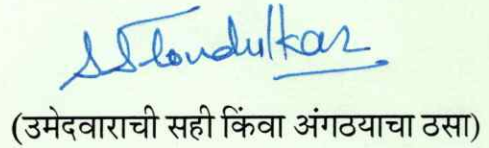 SSTendulkar
(उमेदवाराची सही किंवा अंगठयाचा ठसा)